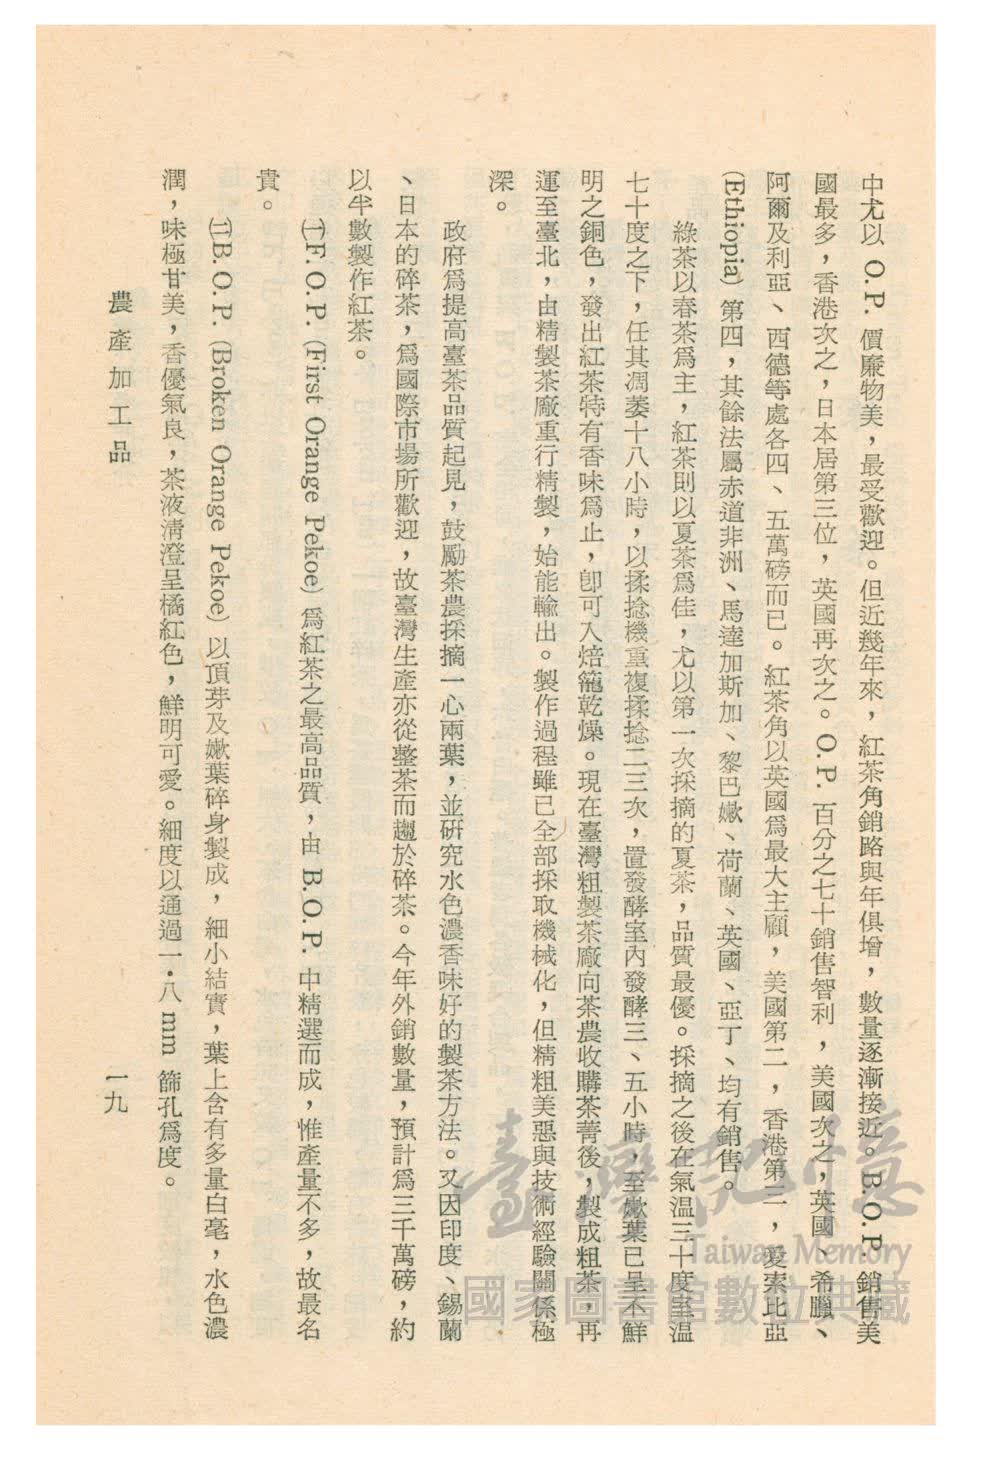 中尤以 O.P. 價廉物美，最受歡迎。但近幾年來，紅茶角銷路與年俱增，數量逐漸接近。B.O.P. 銷售美
國最多，香港次之，日本居第三位，英國再次之。O.P. 百分之七十銷售智利，美國次之，英國、希臘、
阿爾及利亞、西德等處各四、五萬磅而已。紅茶角以英國爲最大主顧，美國第二，香港第三，愛索比亞
(Ethiopia) 第四，其餘法屬赤道非洲、馬達加斯加、黎巴嫩、荷蘭、英國、亞丁、均有銷售。
綠茶以春茶爲主，紅茶則以夏茶爲佳，尤以第一次採摘的夏茶，品質最優。採摘之後在氣溫三十度室溫
七十度之下，任其凋萎十八小時，以揉捻機重複揉捻二三次，置發酵室內發酵三、五小時，至嫩葉已呈不鮮
明之銅色，發出紅茶特有香味爲止，卽可入焙籠乾燥。現在臺灣粗製茶廠向茶農收購茶菁後，製成粗茶，再
運至臺北，由精製茶廠重行精製，始能輸出。製作過程雖已全部採取機械化，但精粗美惡與技術經驗關係極
深。
政府爲提高臺茶品質起見，鼓勵茶農採摘一心兩葉，並研究水色濃香味好的製茶方法。又因印度、錫蘭
、日本的碎茶，爲國際市場所歡迎，故臺灣生產亦從整茶而趨於碎茶。今年外銷數量，預計爲三千萬磅，約
以半數製作紅茶。
㈠F.O.P. (First Orange Pekoe) 爲紅茶之最高品質，由 B.O.P. 中精選而成，惟產量不多，故最名
貴。
㈡B.O.P. (Broken Orange Pekoe) 以頂芽及嫩葉碎身製成，細小結實，葉上含有多量白毫，水色濃
潤，味極甘美，香優氣良，茶液清澄呈橘紅色，鮮明可愛。細度以通過一．八 mm 篩孔爲度。
農產加工品
一九
臺灣記憶
Taiwan Memory
國家圖書館數位典藏